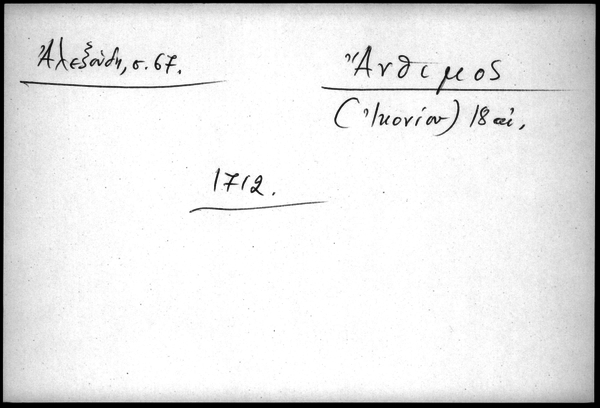 Ἀλεξούδη, σ. 67.
Ἄνθιμος
(Ἰκονίου) 18 αἰ.
1712.